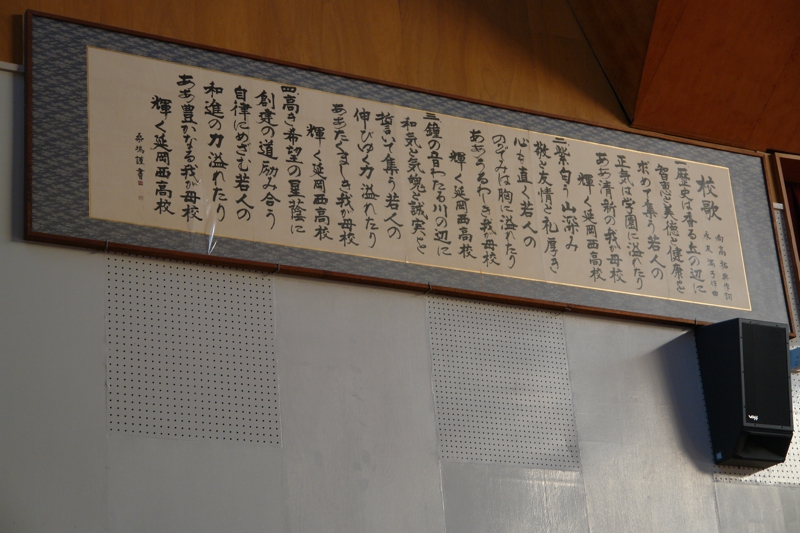 校歌
一歴史は香る丘の辺に
智恵と美徳と健康を
求めて集う若人の
正気は学園に溢れたり
ああ清新の我が母校
輝く延岡西高校
二紫匂う山深み
敬と友情と礼厚き
心も直く若人の
のぞみは胸に溢れたり
ああうるわしき我が母校
輝く延岡西高校
三鐘の音わたる川の辺に
和気と気魄と誠実と
誓いて集う若人の
伸びゆく力溢れたり
ああたくましき我が母校
輝く延岡西高校
四高き希望の星蔭に
創建の道励み合う
自律にめざむ若人の
和進の力溢れたり
ああ豊かなる我が母校
輝く延岡西高校